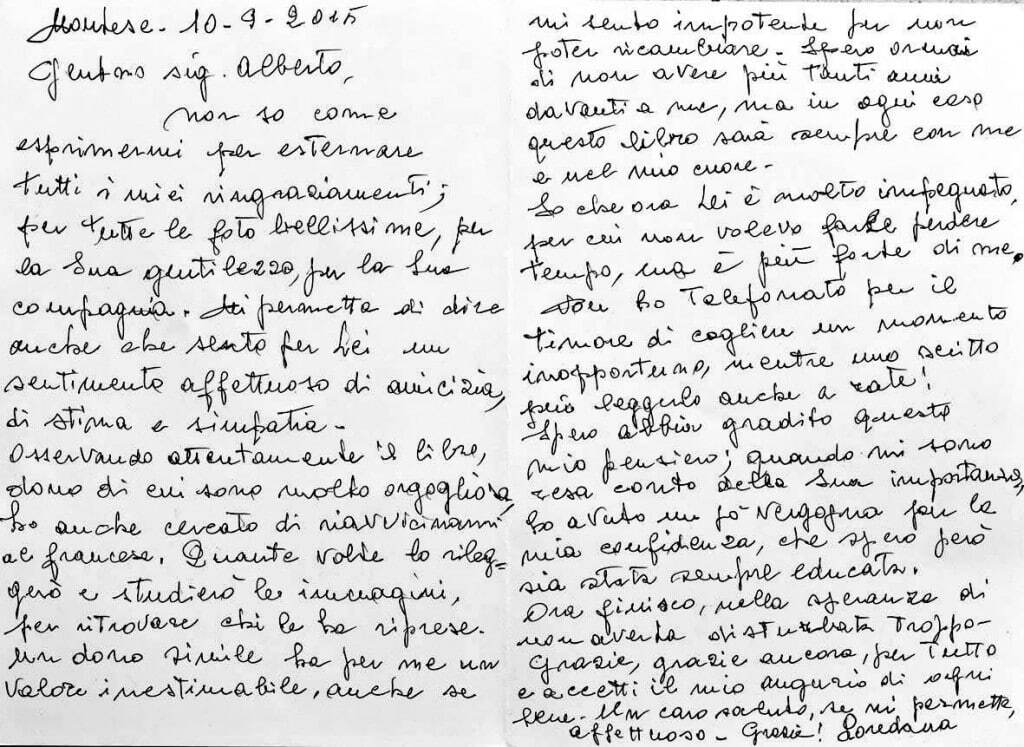 Montese - 10-9-2015
Gent.mo sig. Alberto,
non so come
esprimermi per esternare
tutti i miei ringraziamenti;
per tutte le foto bellissime, per
la Sua gentilezza, per la Sua
compagnia. Mi permetta di dire
anche che sento per Lei un
sentimento affettuoso di amicizia,
di stima e simpatia -
Osservando attentamente il libro,
dono di cui sono molto orgogliosa,
ho anche cercato di riavvicinarmi
al francese. Quante volte lo rileg=
gerò e studierò le immagini,
per ritrovare chi le ha riprese.
Un dono simile ha per me un
valore inestimabile, anche se
mi sento impotente per non
poter ricambiare - Spero ormai
di non avere più tanti anni
davanti a me, ma in ogni caso
questo libro sarà sempre con me
e nel mio cuore -
So che ora Lei è molto impegnato,
per cui non volevo farLe perdere
tempo, ma è più forte di me.
Non ho telefonato per il
timore di cogliere un momento
inopportuno, mentre uno scritto
può leggerlo anche a rate!
Spero abbia gradito questo
mio pensiero; quando mi sono
resa conto della Sua importanza,
ho avuto un pò vergogna per la
mia confidenza, che spero però
sia stata sempre educata.
Ora finisco, nella speranza di
non averLa disturbata troppo -
Grazie, grazie ancora, per tutto
e accetti il mio augurio di ogni
bene. Un caro saluto, se mi permette,
affettuoso - Grazie! Loredana